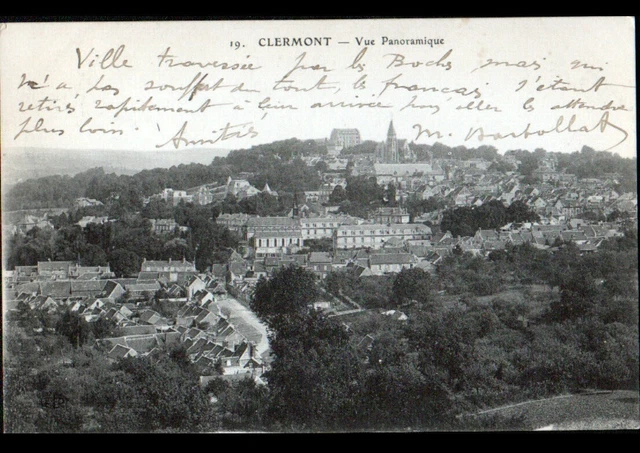 19. CLERMONT — Vue Panoramique
Ville traversée par les Bochs mais qui
n'a pas souffert du tout, les français s'étant
retirés rapidement à leur arrivée pour aller les attendre
plus loin. Amitiés M.